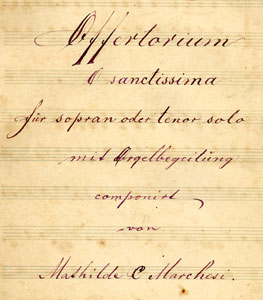 Offertorium
O sanctissima
für sopran oder tenor solo
mit Orgelbegeitüng
componirt
von
Mathilde C Marchesi.